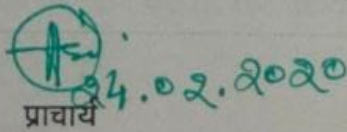 24.02.2020
प्राचार्य